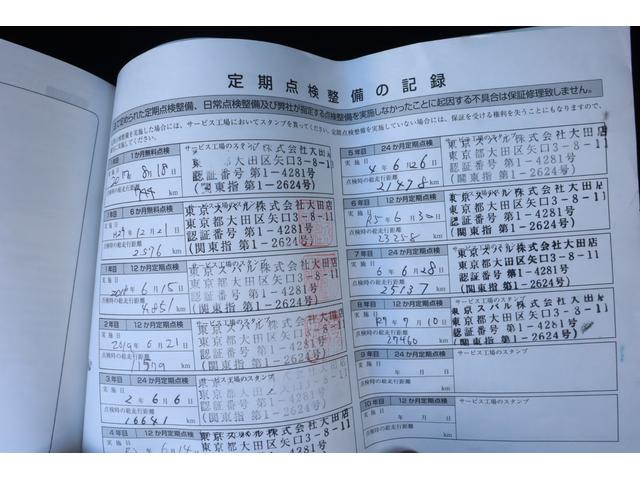 定期点検整備の記録
で定められた定期点検整備、日常点検整備及び弊社が指定する点検整備を実施しなかったことに起因する不具合は保証修理致しません。
を実施した場合には、サービス工場においてスタンプを貰ってください。定期点検整備を実施していない場合には、保証を受ける権利を失うこともありますので、
1か月無料点検
サービス工場のスタンプ
実施日
8月18日
点検時の総走行距離
744 km
東京スバル株式会社大田店
東京都大田区矢口3-8-11
認証番号 第1-4281号
(関東指 第1-2624号)
6か月無料点検
実施日
H29年12月21日
点検時の総走行距離
2576 km
東京スバル株式会社大田店
東京都大田区矢口3-8-11
認証番号 第1-4281号
(関東指 第1-2624号)
1年目 12か月定期点検
実施日
2018年6月15日
点検時の総走行距離
4851 km
東京スバル株式会社大田店
東京都大田区矢口3-8-11
認証番号 第1-4281号
(関東指 第1-2624号)
2年目 12か月定期点検
サービス工場のスタンプ
実施日
2019年6月21日
点検時の総走行距離
km
東京スバル株式会社大田店
東京都大田区矢口3-8-11
認証番号 第1-4281号
(関東指 第1-2624号)
3年目 24か月定期点検
サービス工場のスタンプ
実施日
2年6月6日
点検時の総走行距離
16641 km
4年目 12か月定期点検
実施日
6月14日
東京スバル株式会社大田店
東京都大田区矢口3-8-11
認証番号 第1-4281号
5年目 24か月定期点検
実施日
4年6月26日
点検時の総走行距離
21478 km
東京スバル株式会社大田店
東京都大田区矢口3-8-11
認証番号 第1-4281号
(関東指 第1-2624号)
6年目 12か月定期点検
実施日
R5年6月30日
点検時の総走行距離
23258 km
東京スバル株式会社大田店
東京都大田区矢口3-8-11
認証番号 第1-4281号
(関東指 第1-2624号)
7年目 24か月定期点検
実施日
6年6月28日
点検時の総走行距離
25137 km
東京スバル株式会社大田店
東京都大田区矢口3-8-11
認証番号 第1-4281号
(関東指 第1-2624号)
8年目 12か月定期点検
サービス工場のスタンプ
実施日
R7年7月10日
点検時の総走行距離
27460 km
東京スバル株式会社大田店
東京都大田区矢口3-8-11
認証番号 第1-4281号
(関東指 第1-2624号)
9年目 24か月定期点検
サービス工場のスタンプ
実施日
年 月 日
点検時の総走行距離
km
10年目 12か月定期点検
サービス工場のスタンプ
実施日
年 月 日
点検時の総走行距離
km